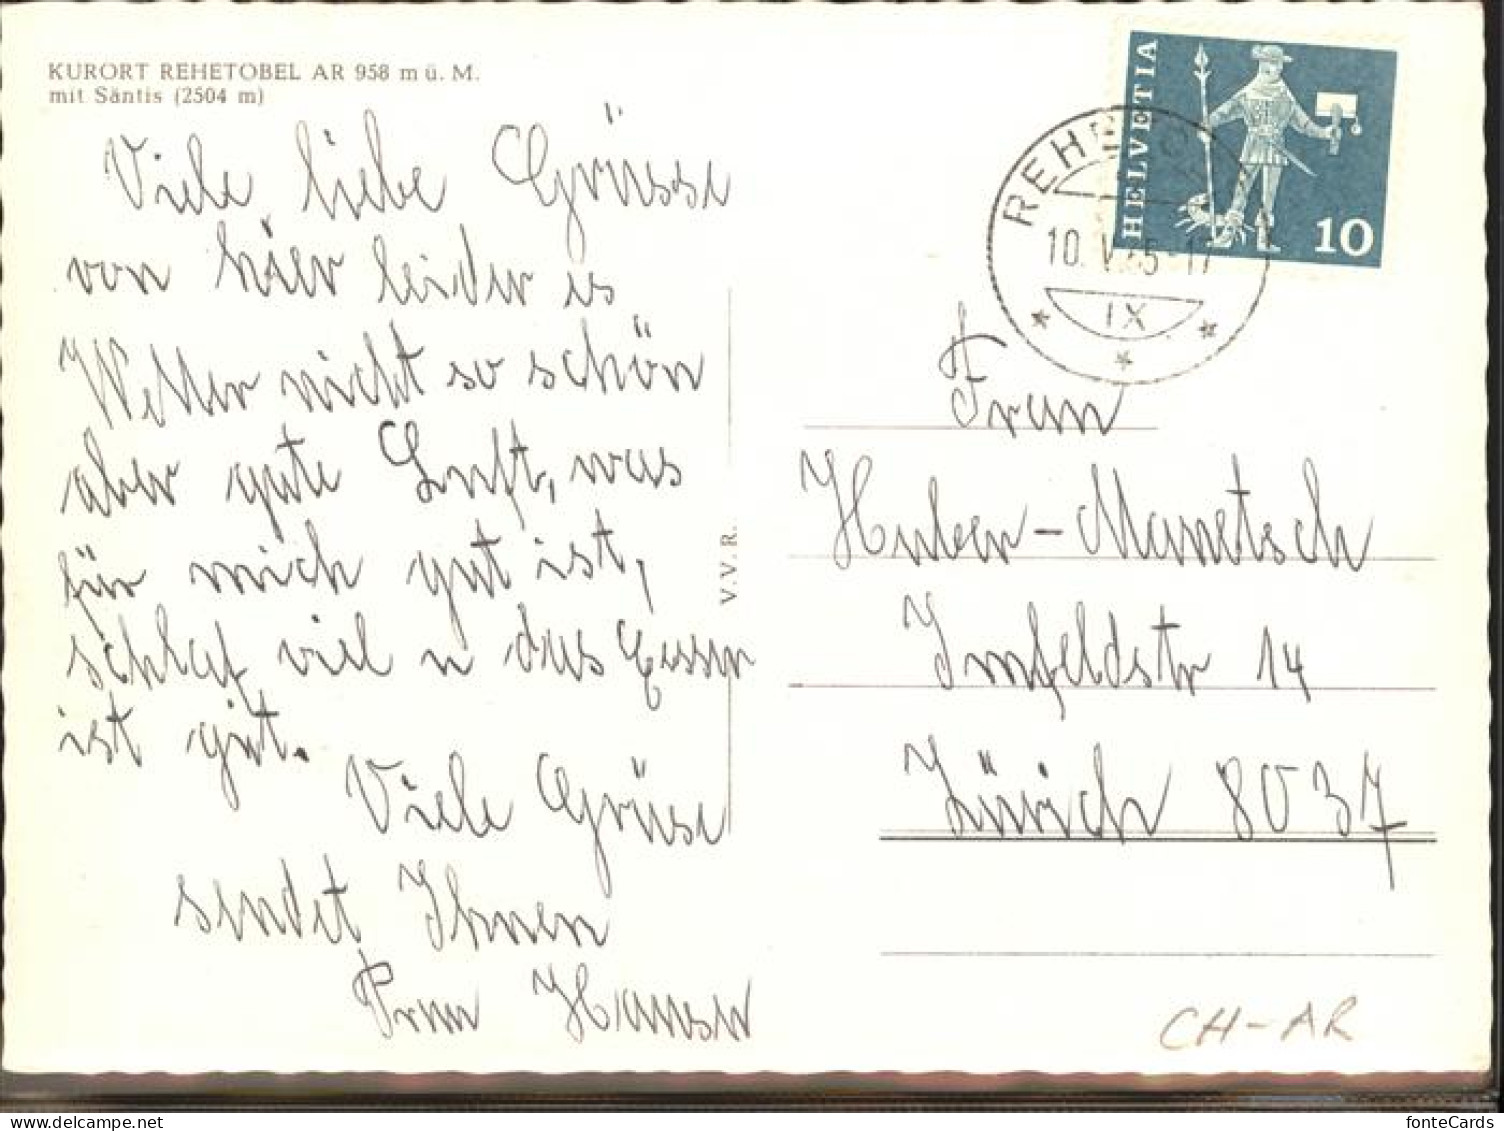 KURORT REHETOBEL AR 958 m ü. M.
mit Säntis (2504 m)
Viele liebe Grüsse
von hier leider is
Wetter nicht so schön
aber gute Luft, was
für mich gut ist,
schlaf viel u das Essen
ist gut.
Viele Grüsse
sendet Ihnen
Frau Hauser
V.V.R.
HELVETIA
10
REHETOBEL
10. V. 65-17
IX
Frau
Huber-Manetsch
Imfeldstr 14
Zürich 8037
CH-AR
fonteCards